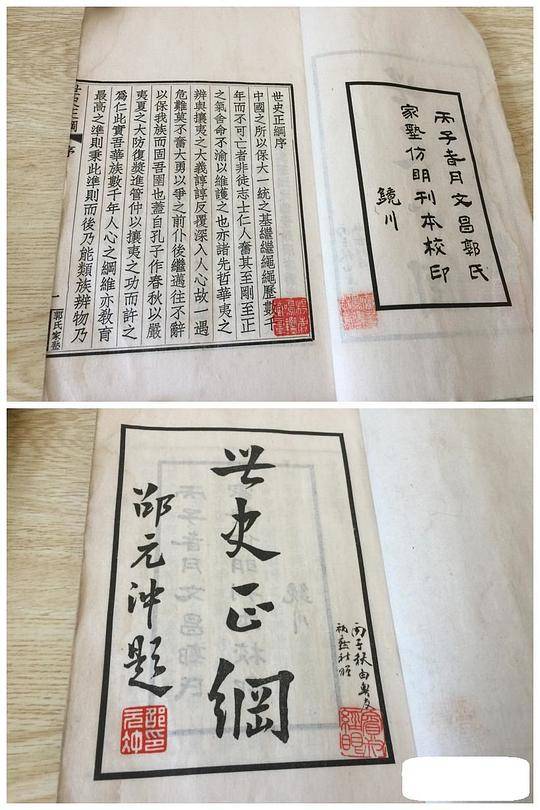 丙子春月文昌郭氏
家塾仿明刊本校印
鏡川
世史正綱序
中國之所以保大一統之基繼繼繩繩歷數千
年而不可亡者非徒志士仁人奮其至剛至正
之氣舍命不渝以維護之也亦諸先哲華夷之
辨與攘夷之大義諄諄反覆深入人心故一遇
危難莫不奮大勇以爭之前仆後繼邁往不辭
以保我族而固吾圉也蓋自孔子作春秋以嚴
夷夏之大防復獎進管仲以攘夷之功而許之
爲仁此實吾華族數千年人心之綱維亦敎育
最高之準則秉此準則而後乃能類族辨物乃
世史正綱 序 一 郭氏家塾
丙子秋由
世史正綱
邵元沖題
邵元沖印